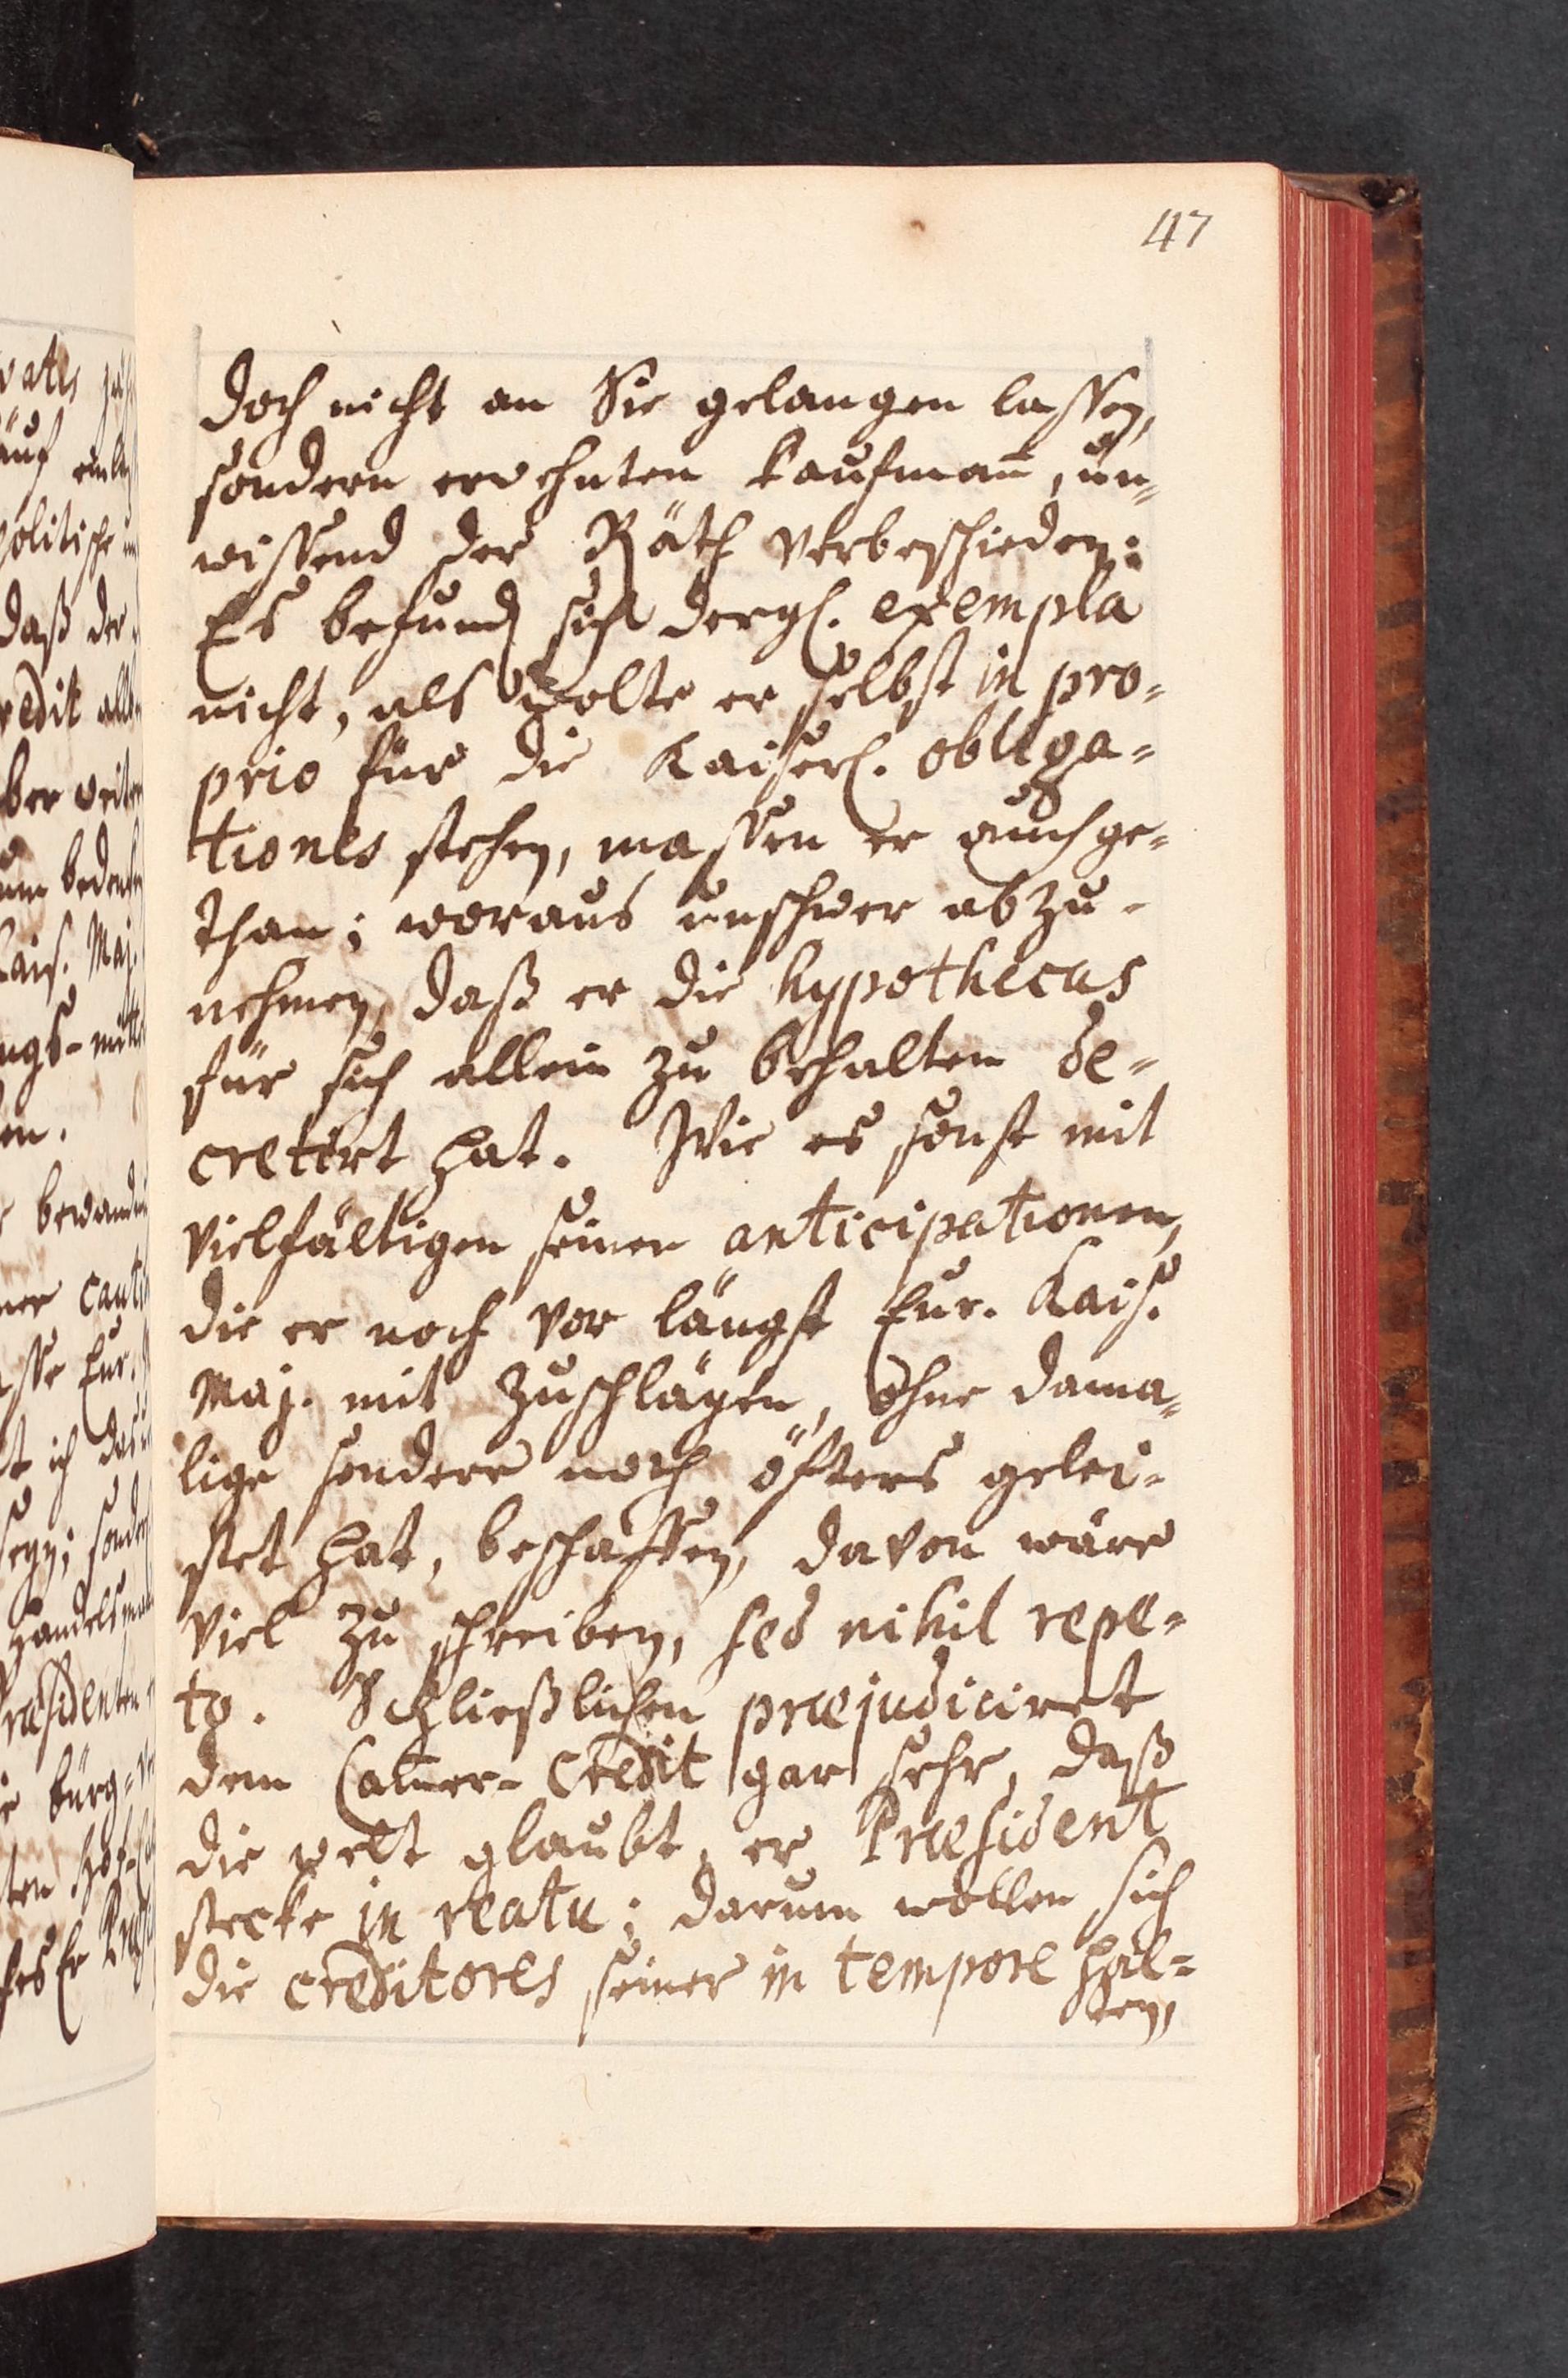 47
doch nicht an Sie gelangen lassen,
sondern erwehnten kaufman̄, un-
wissend der Räth verbeschieden:
Es befund sich dergl. exempla
nicht, als wolte er selbst in pro-
prio für die Kaiserl. obliga-
tiones stehen, massen er auch ge-
than; woraus unschwer abzu-
nehmen, daß er die hypothecas
für sich allein zu behalten de-
cretirt hat. Wie es sonst mit
vielfältigen seinen anticipationen,
die er noch vor längst Eur. Kais.
Maj. mit Zuschlägen, ohne dama-
lige sondere noch öfters gelei-
stet hat, beschaffen, davon wäre
viel zu schreiben, sed nihil repe-
to. Schließlichen præjudiciret
dem Cam̄er-Credit gar sehr, daß
die welt glaubt, er Præsident
stecke in reatu; darum wollen sich
die creditores seiner in tempore hal-
ten,